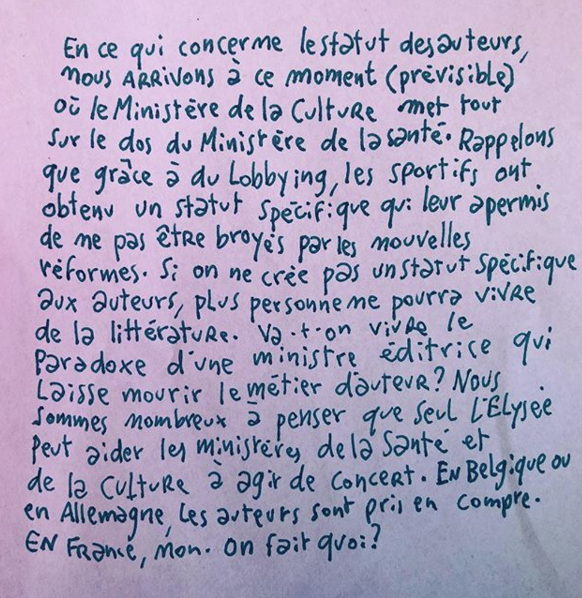 En ce qui concerne le statut des auteurs,
nous ARRIVONS à ce moment (prévisible)
où le Ministère de la CultuRe met tout
sur le dos du Ministère de la santé. Rappelons
que grâce à du Lobbying, les sportifs ont
obtenu un statut spécifique qui leur a permis
de ne pas être broyés par les nouvelles
réformes. Si on ne crée pas un statut spécifique
aux auteurs, plus personne ne pourra vivre
de la littératuRe. Va-t-on vivRe le
paradoxe d'une ministre éditrice qui
Laisse mourir le métier d'auteur? Nous
sommes nombreux à penser que seul L'Élysée
peut aider les ministères de la Santé et
de la CultuRe à agir de concert. EN Belgique ou
en Allemagne, Les auteurs sont pris en compte.
EN FRance, non. On fait quoi?